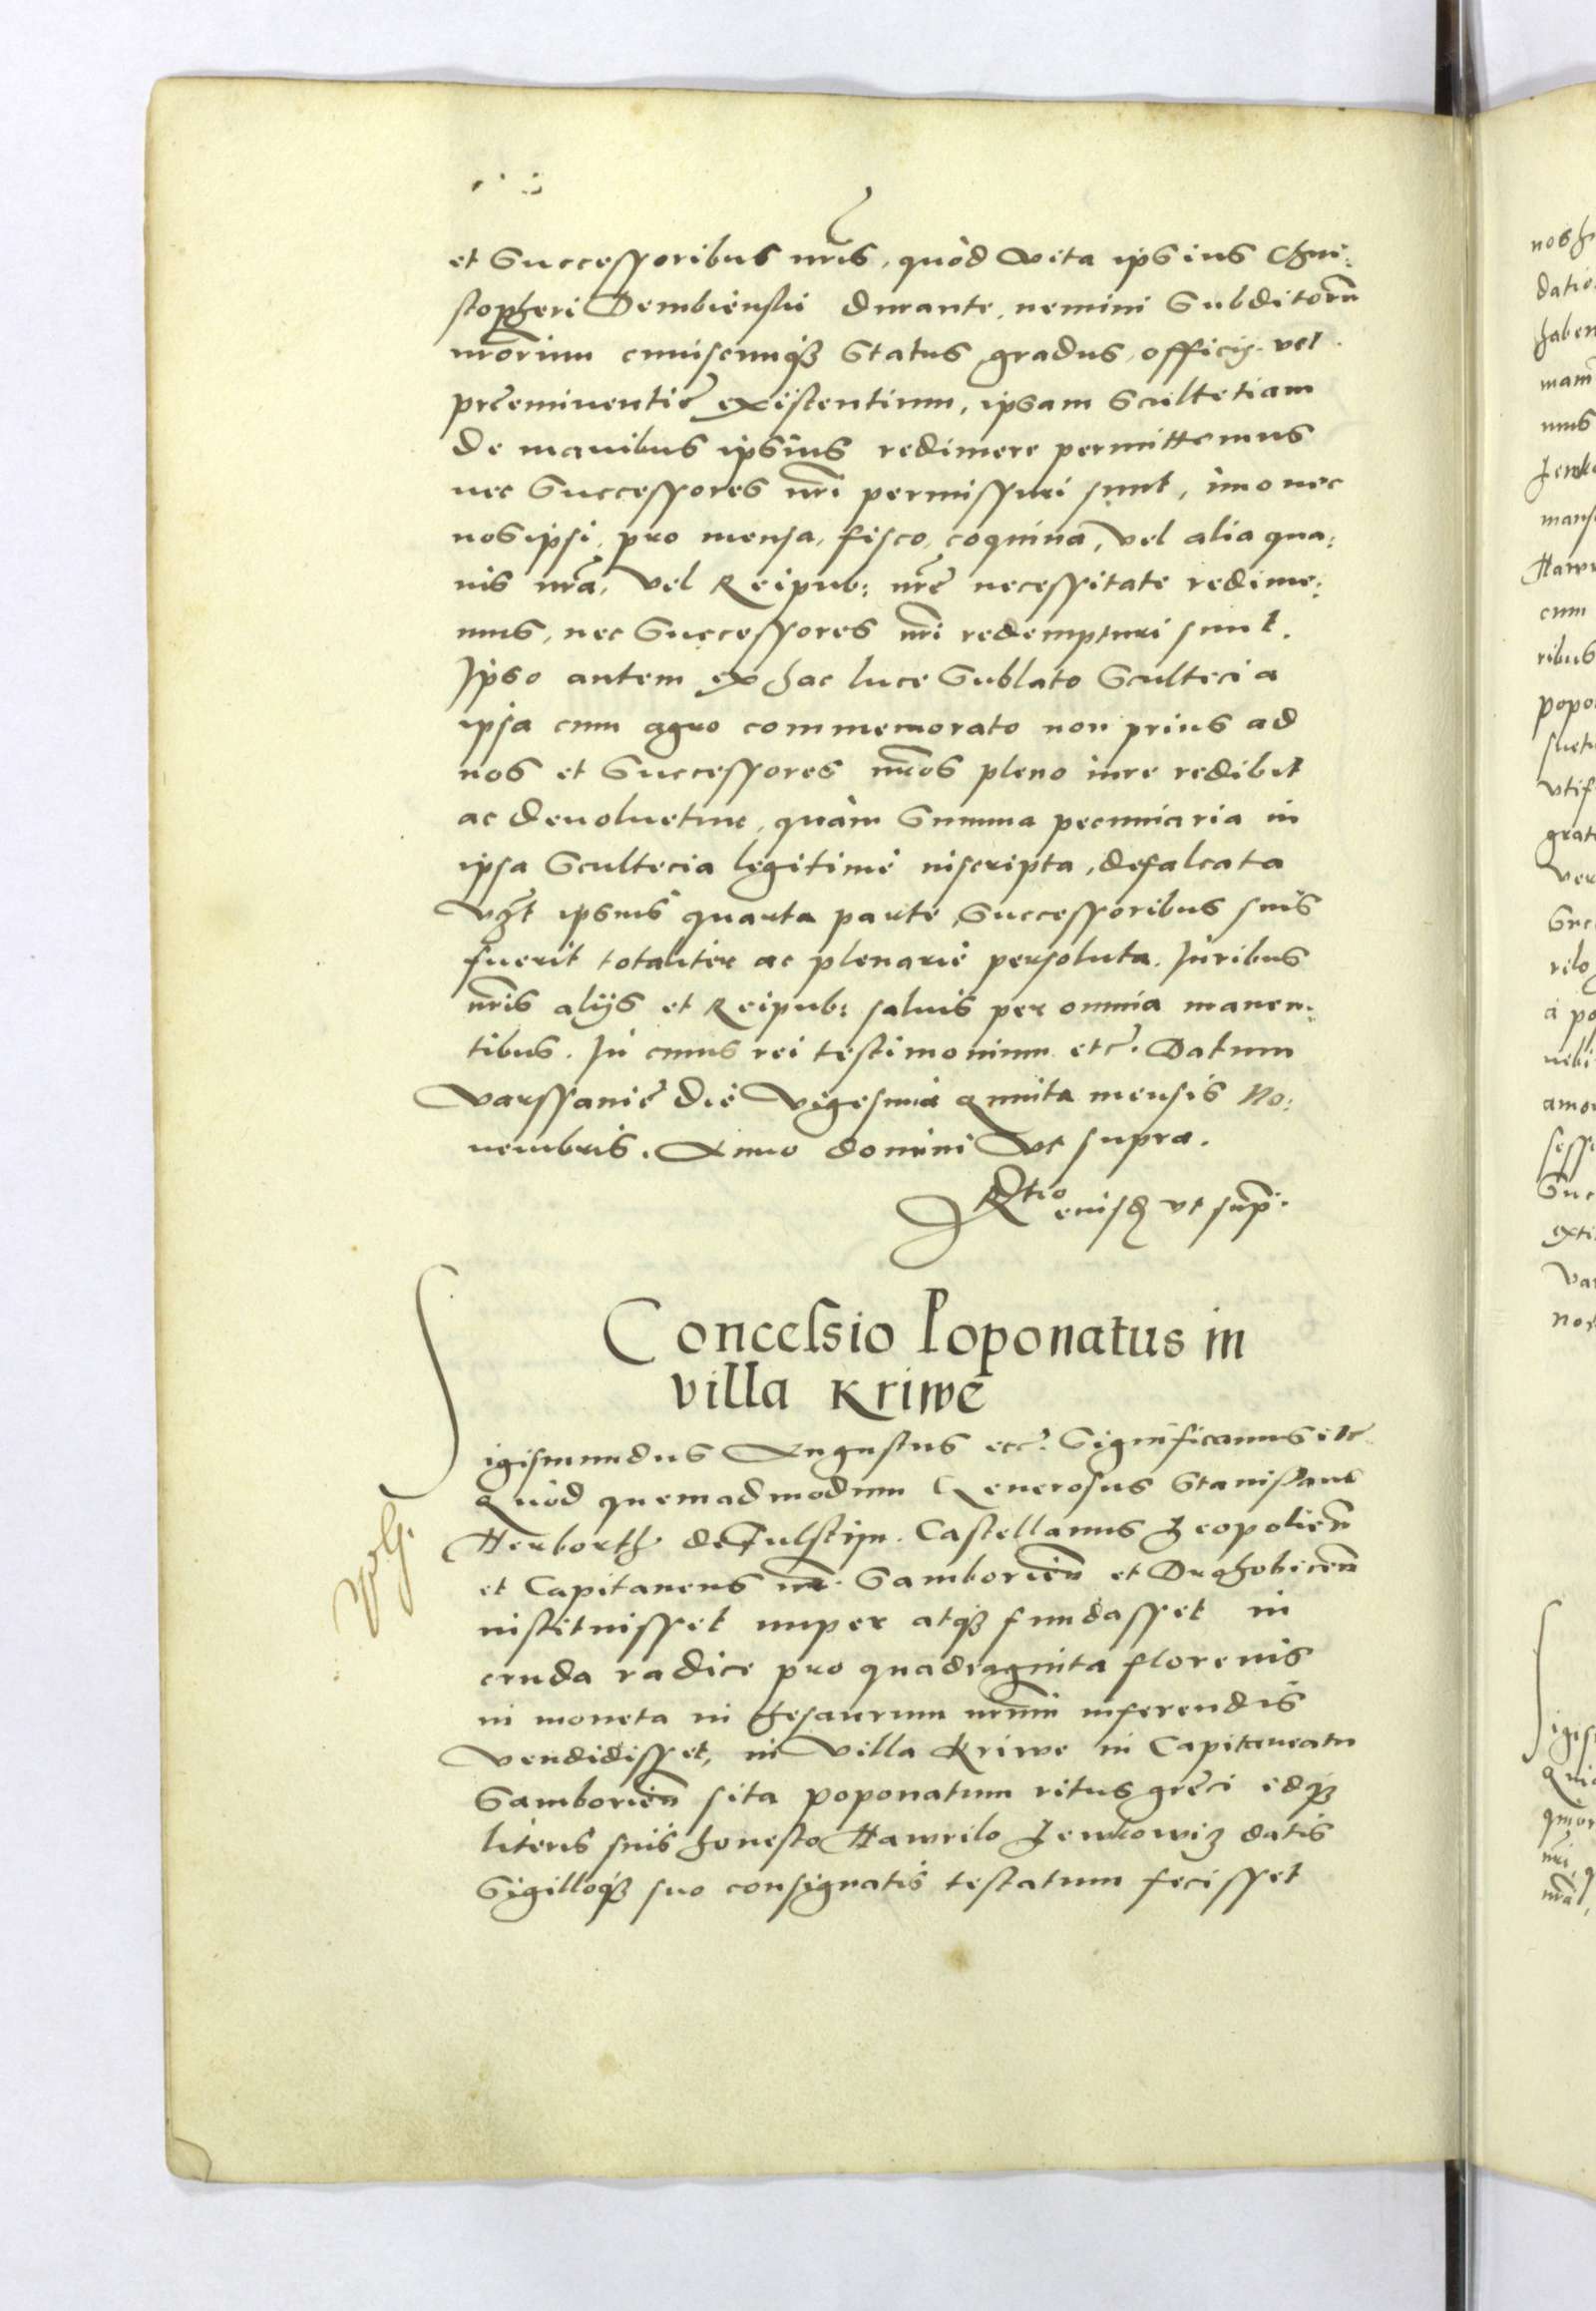 et Successoribus nr̃is, quòd vita ipsius Chri:
stopheri Dembienski durante, nemini Subditorũ
nr̃orum cuiuscunqȝ Status, gradus, officij vel
prę̃eminentię existentium, ipsam Scultetiam
de manibus ipsius redimere permittemus
nec Successores nr̃i permissuri sunt, imo nec
nos ipsi, pro mensa, fisco, coquina, vel alia qua:
uis nr̃a, vel Reipub: nr̃ę necessitate redime:
mus, nec Successores nr̃i redempturi sunt.
Ipso autem ex hac luce Sublato Scultecia
ipsa cum agro commemorato non prius ad
nos et Successores nr̃os pleno iure redibit
ac deuoluetur, quàm Summa pecuniaria in
ipsa Scultecia legitimè inscripta, defalcata
vȝt ipsius quarta parte, Successoribus suis
fuerit totaliter ac plenariè persoluta. Iuribus
nr̃is alijs et Reipub: saluis per omnia manen:
tibus. In cuius rei testimonium etc. Datum
Varssauię die Vigesima Quinta mensis No:
uembris. Anno domini Vt supra.
Rtio eiusd vt sup̃.
Concessio Poponatus in
villa Kriwe
Sigismundus Augustus etc. Significamus etc
Quod quemadmodum Generosus Stanislaus
Herborth de Fulstijn. Castellanus Leopolieñ
et Capitaneus nr̃. Samborieñ et Drohobiceñ
instituisset nuper atqȝ fundasset in
cruda radice pro quadraginta florenis
in moneta in thesaurum nr̃um inferendis
vendidisset, in Villa Kriwe in Capitaneatu
Samborieñ sita poponatum ritus gręci idqȝ
literis suis honesto Hawrilo Jenkowiz datis
Sigilloqȝ suo consignatis testatum fecisset